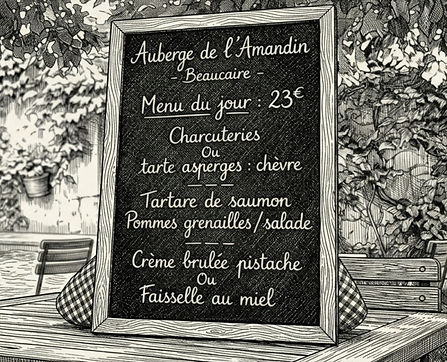 Auberge de l'Amandin
- Beaucaire -
Menu du jour : 23€
Charcuteries
Ou
tarte asperges : chèvre
Tartare de saumon
Pommes grenailles/salade
Crème brulée pistache
Ou
Faisselle au miel